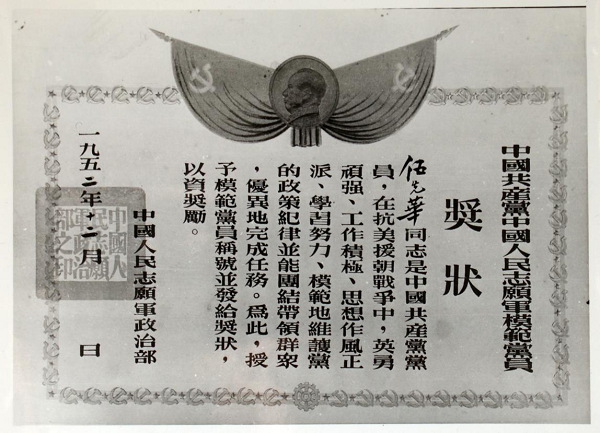 中國共産黨中國人民志願軍模範黨員
奬狀
伍先華同志是中國共産黨黨
員，在抗美援朝戰爭中，英勇
頑强、工作積極、思想作風正
派、學習努力、模範地維護黨
的政策紀律並能團結帶領群衆
，優異地完成任務。爲此，授
予模範黨員稱號並發給奬狀，
以資奬勵。
中國人民志願軍政治部
一九五二年十二月 日
中國人民志願軍政治部之印